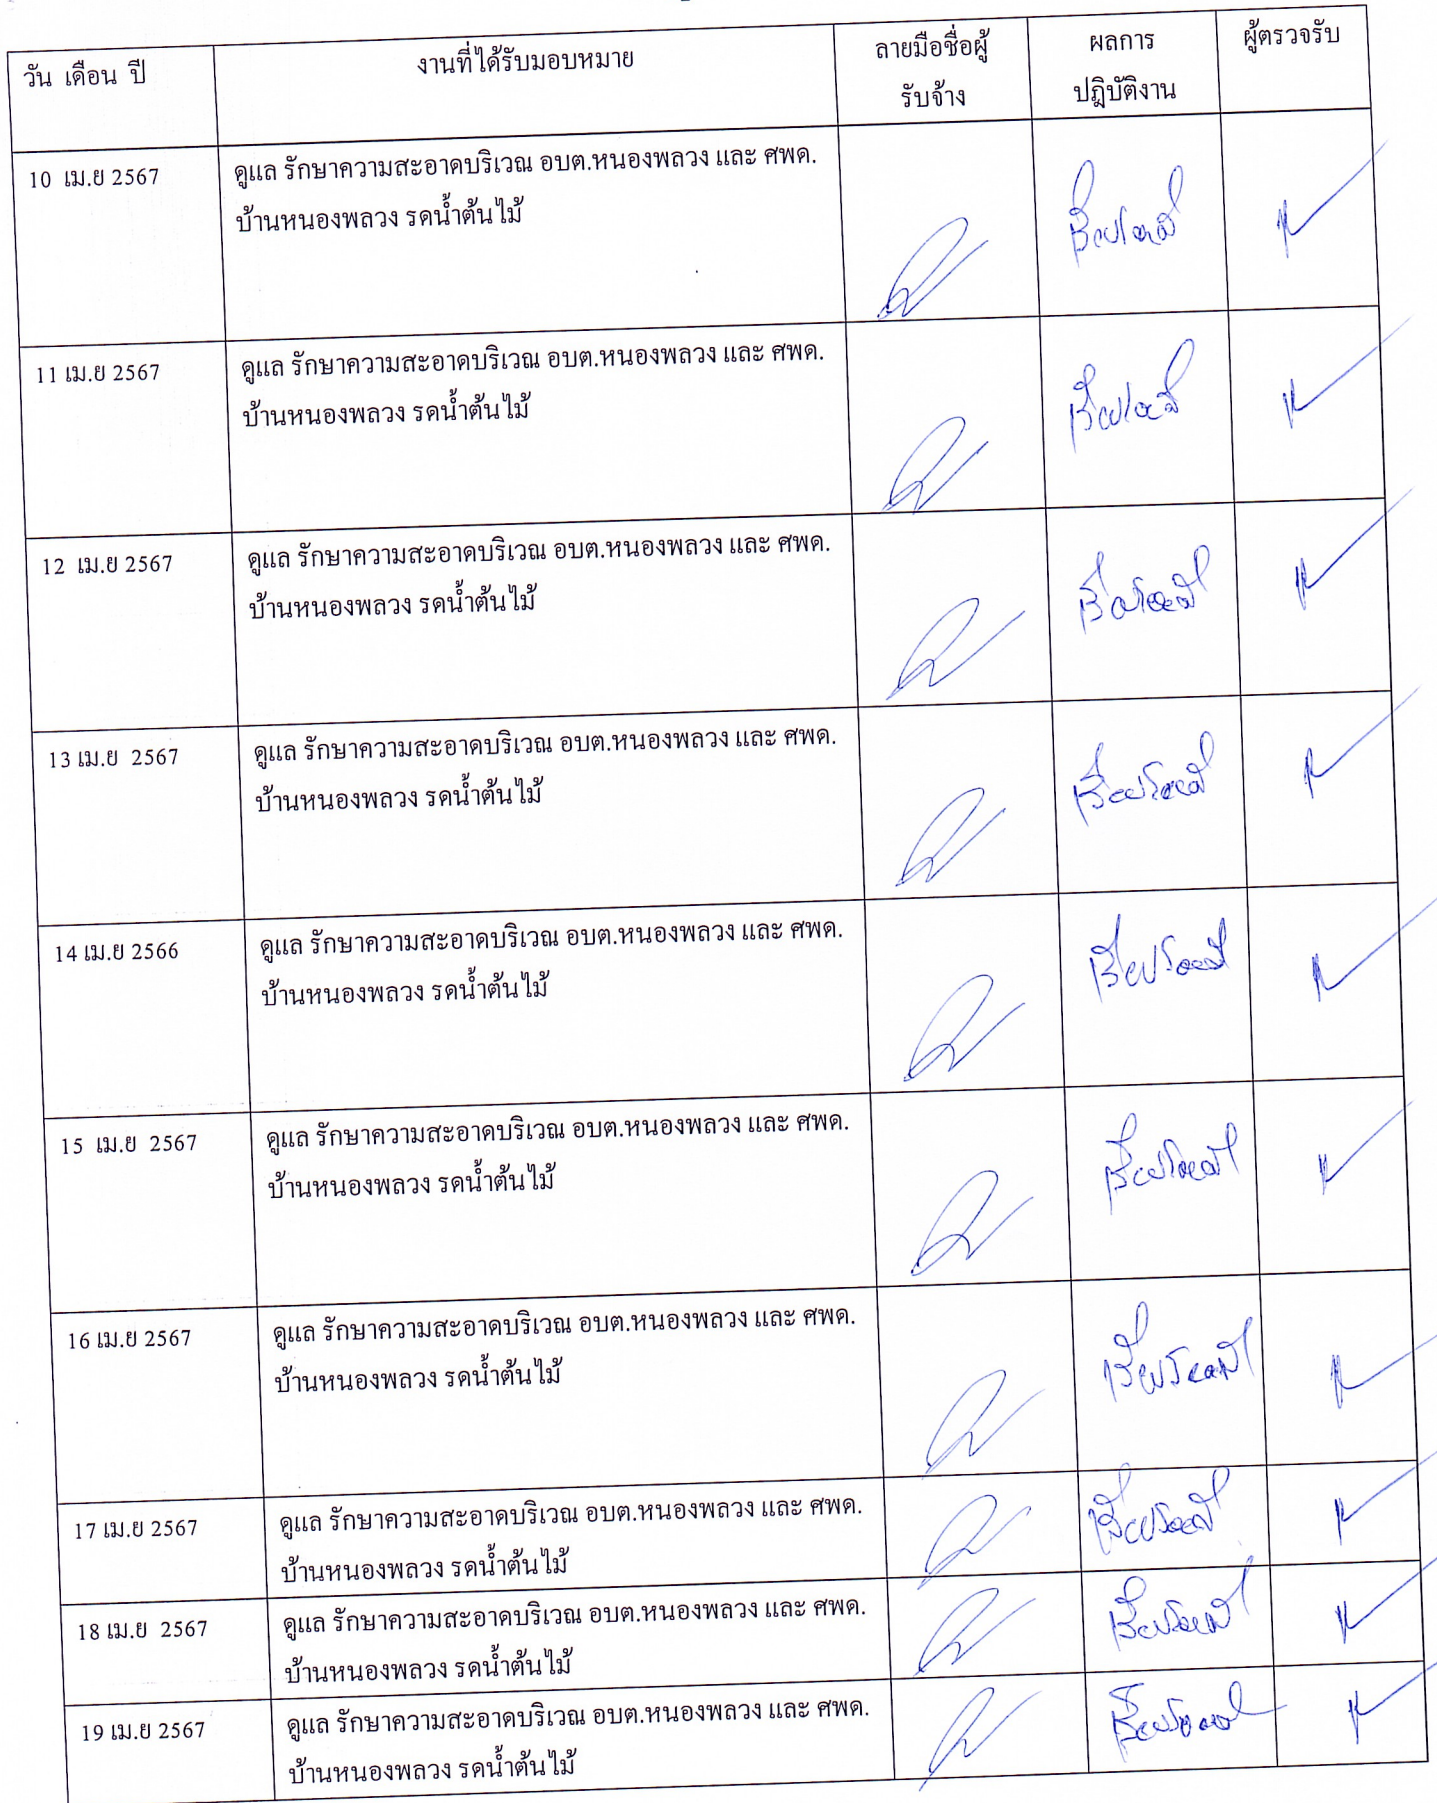 วัน เดือน ปี
งานที่ได้รับมอบหมาย
ลายมือชื่อผู้
รับจ้าง
ผลการ
ปฎิบัติงาน
ผู้ตรวจรับ
10 เม.ย 2567
ดูแล รักษาความสะอาดบริเวณ อบต.หนองพลวง และ ศพด.
บ้านหนองพลวง รดน้ำต้นไม้
เรียบร้อยดี
11 เม.ย 2567
ดูแล รักษาความสะอาดบริเวณ อบต.หนองพลวง และ ศพด.
บ้านหนองพลวง รดน้ำต้นไม้
เรียบร้อยดี
12 เม.ย 2567
ดูแล รักษาความสะอาดบริเวณ อบต.หนองพลวง และ ศพด.
บ้านหนองพลวง รดน้ำต้นไม้
เรียบร้อยดี
13 เม.ย 2567
ดูแล รักษาความสะอาดบริเวณ อบต.หนองพลวง และ ศพด.
บ้านหนองพลวง รดน้ำต้นไม้
เรียบร้อยดี
14 เม.ย 2566
ดูแล รักษาความสะอาดบริเวณ อบต.หนองพลวง และ ศพด.
บ้านหนองพลวง รดน้ำต้นไม้
เรียบร้อยดี
15 เม.ย 2567
ดูแล รักษาความสะอาดบริเวณ อบต.หนองพลวง และ ศพด.
บ้านหนองพลวง รดน้ำต้นไม้
เรียบร้อยดี
16 เม.ย 2567
ดูแล รักษาความสะอาดบริเวณ อบต.หนองพลวง และ ศพด.
บ้านหนองพลวง รดน้ำต้นไม้
เรียบร้อยดี
17 เม.ย 2567
ดูแล รักษาความสะอาดบริเวณ อบต.หนองพลวง และ ศพด.
บ้านหนองพลวง รดน้ำต้นไม้
เรียบร้อยดี
18 เม.ย 2567
ดูแล รักษาความสะอาดบริเวณ อบต.หนองพลวง และ ศพด.
บ้านหนองพลวง รดน้ำต้นไม้
เรียบร้อยดี
19 เม.ย 2567
ดูแล รักษาความสะอาดบริเวณ อบต.หนองพลวง และ ศพด.
บ้านหนองพลวง รดน้ำต้นไม้
เรียบร้อยดี